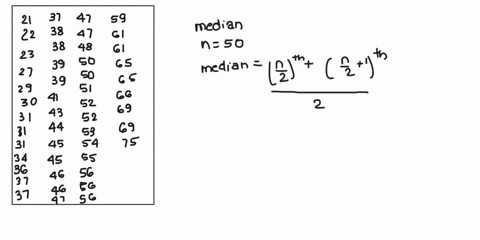 21 37 47 59
22 38 47 61
23 38 48 61
27 39 50 65
29 39 50 65
30 41 51 66
31 43 52 69
31 44 52 69
31 45 53 75
34 45 54
36 46 55
37 46 56
37 47 56
56
median
n = 50
median = (n/2)^th + (n/2 + 1)^th
2